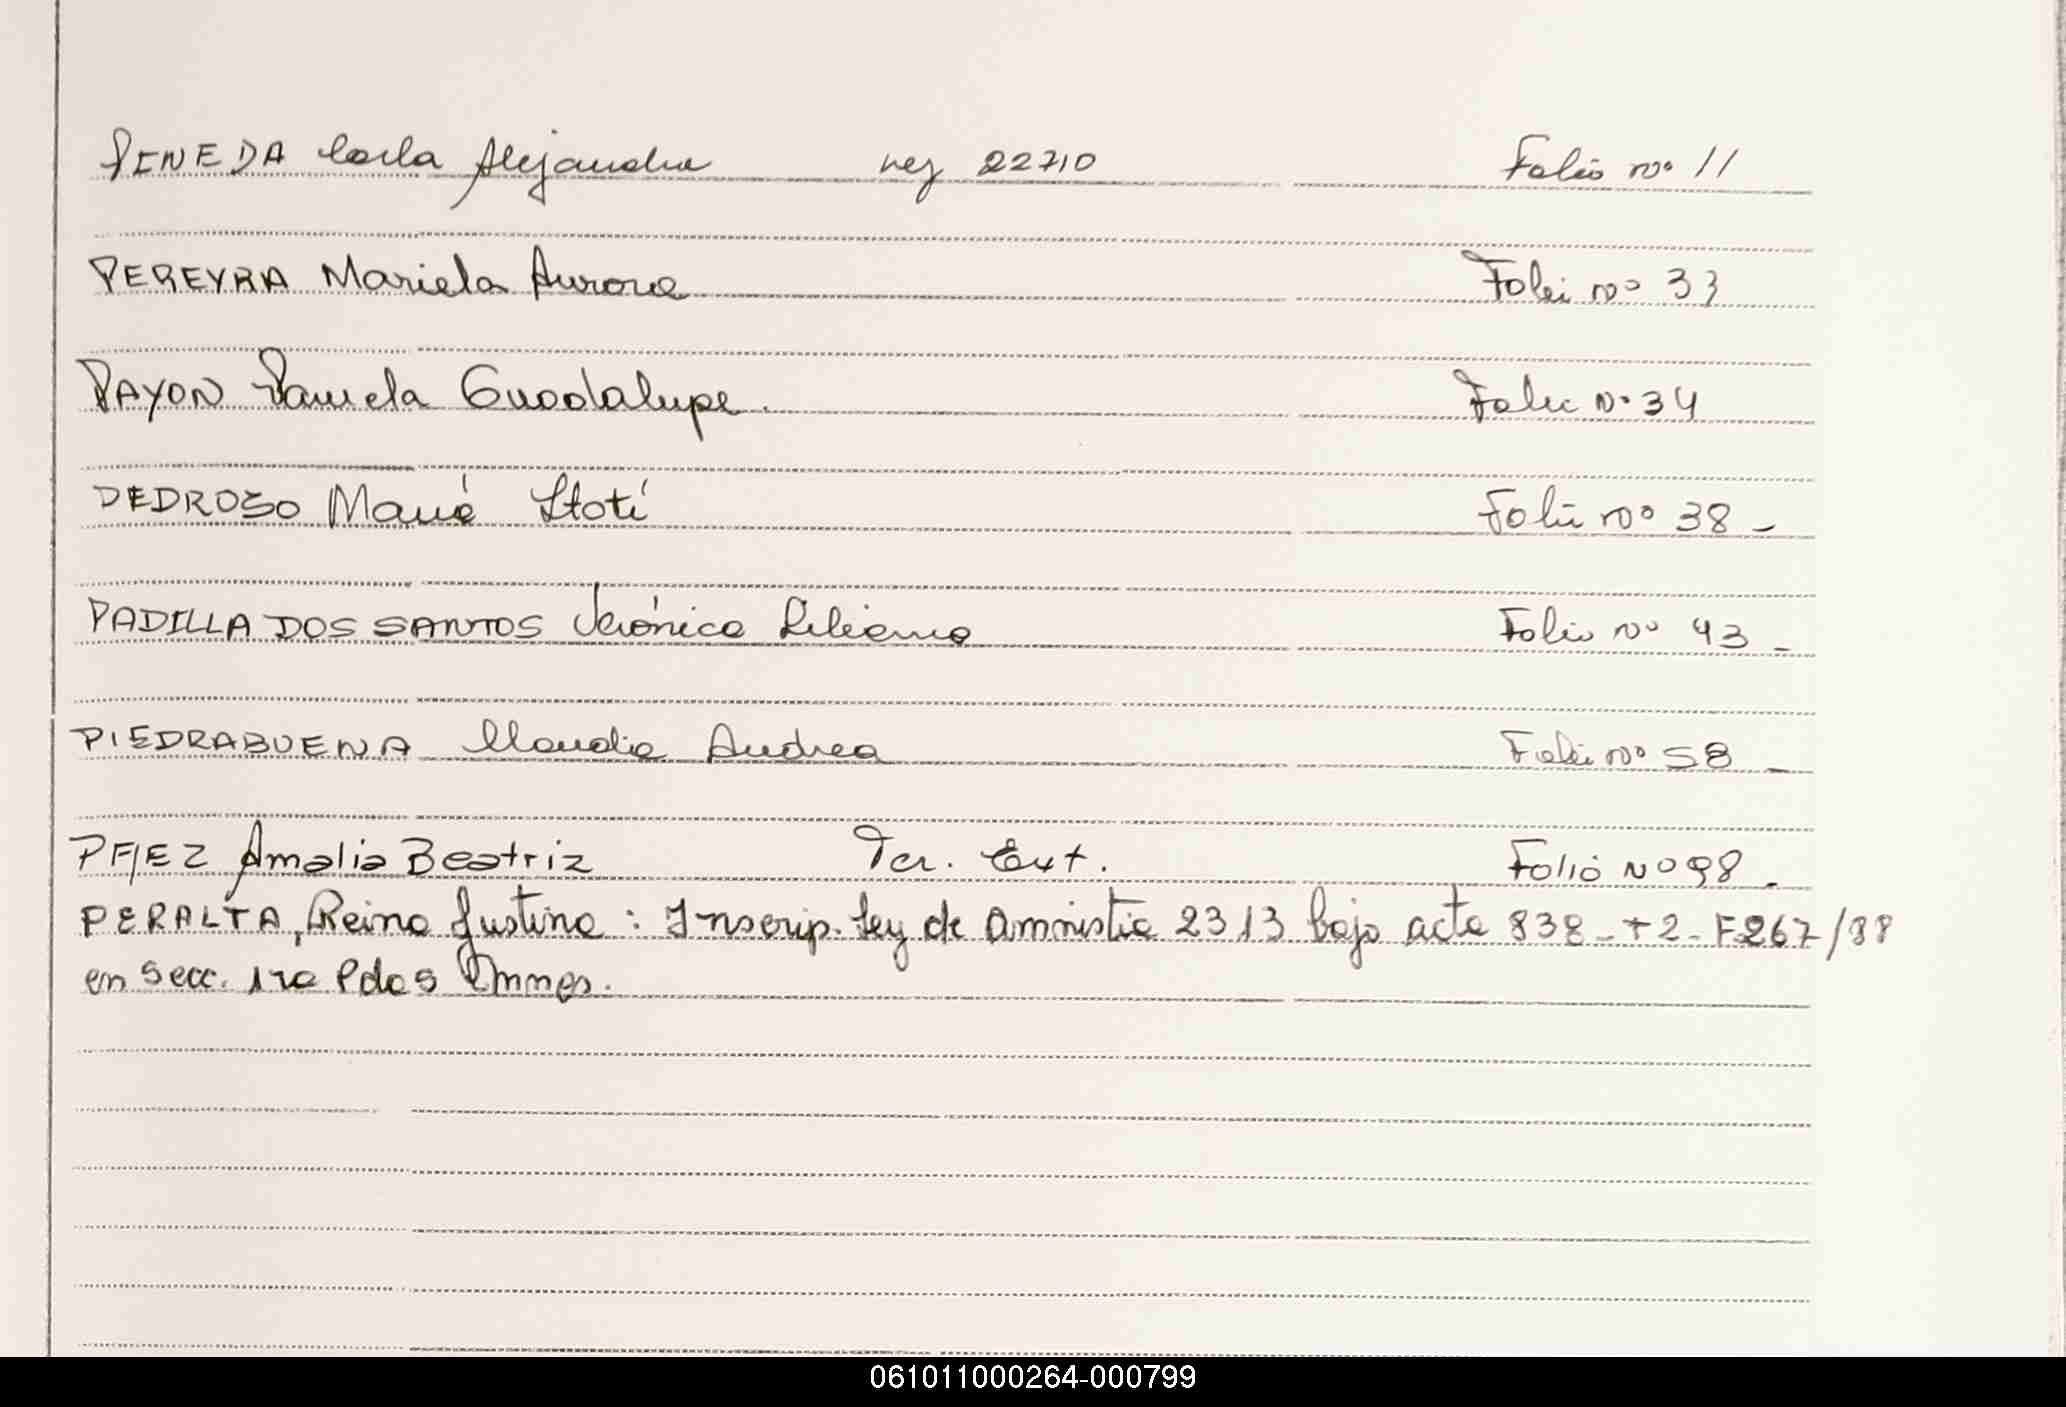 PINEDA Carla Alejandra ley 22710 Folio no 11
PEREYRA Mariela Aurora Folio no 33
PAYON Pamela Guadalupe. Folio No 34
PEDROZO María Itatí Folio no 38 -
PADILLA DOS SANTOS Verónica Liliana Folio no 43 -
PIEDRABUENA Claudia Andrea Folio no 58 -
Amalia Beatriz Ter. Ext. Folio No 98 -
PERALTA, Reina Justina : Inscrip. Ley de Amnistia 2313 bajo acta 838 - T2 - F267/88
en Secc. 1ra Pdas
061011000264-000799